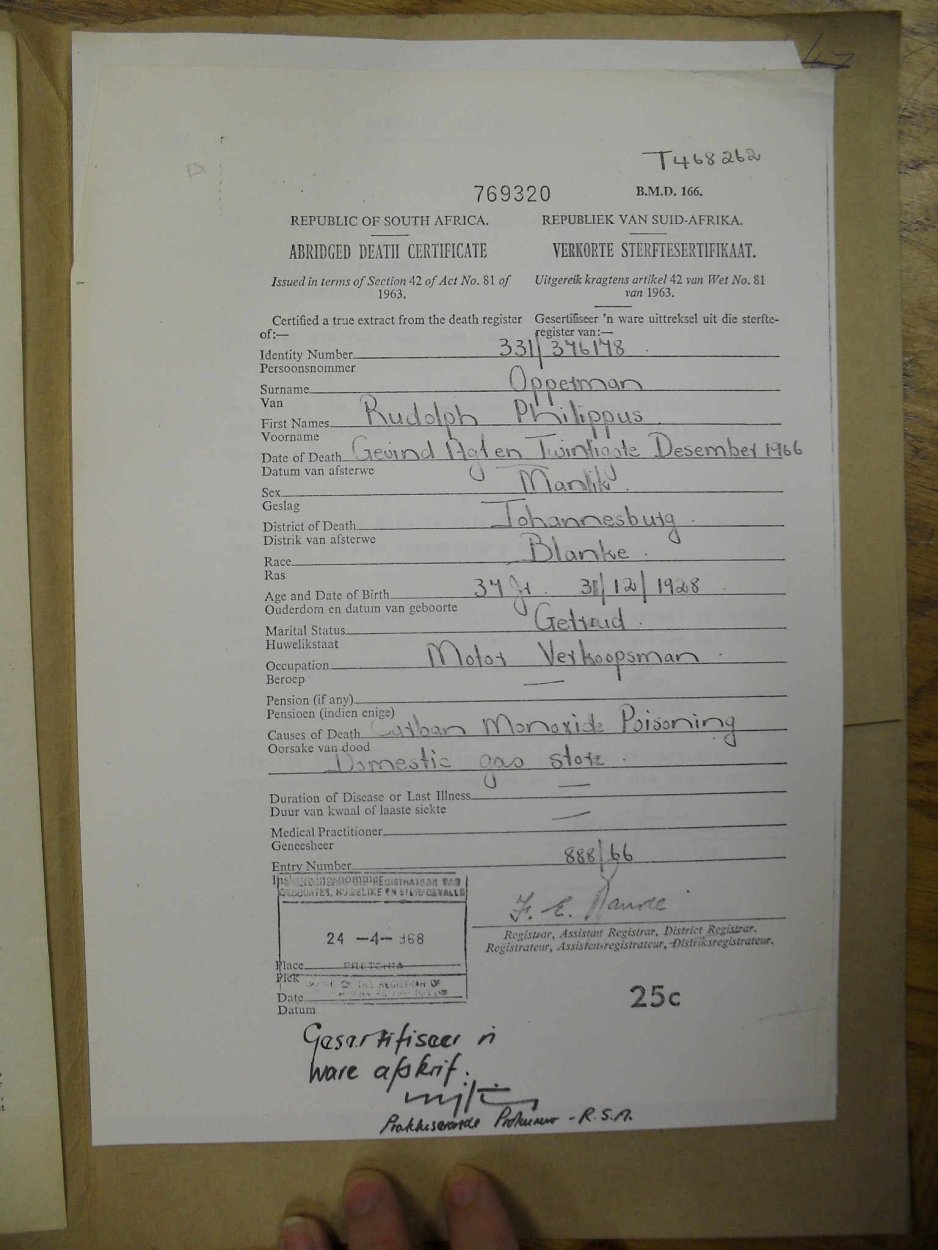 T468262
769320 B.M.D. 166.
REPUBLIC OF SOUTH AFRICA. REPUBLIEK VAN SUID-AFRIKA.
ABRIDGED DEATH CERTIFICATE VERKORTE STERFTESERTIFIKAAT.
Issued in terms of Section 42 of Act No. 81 of Uitgereik kragtens artikel 42 van Wet No. 81
1963. van 1963.
Certified a true extract from the death register Gesertifiseer 'n ware uittreksel uit die sterfte-
of:— register van:—
Identity Number 331/376178
Persoonsnommer
Surname Opperman
Van
First Names Rudolph Philippus
Voorname
Date of Death Gevind Agt en Twintigste Desember 1966
Datum van afsterwe
Sex Manlik
Geslag
District of Death Johannesburg
Distrik van afsterwe
Race Blanke
Ras
Age and Date of Birth 37 Jr. 31/12/1928
Ouderdom en datum van geboorte
Marital Status Getroud
Huwelikstaat
Occupation Motor Verkoopsman
Beroep
Pension (if any) —
Pensioen (indien enige)
Causes of Death Carbon Monoxide Poisoning
Oorsake van dood
Domestic gas stove
Duration of Disease or Last Illness —
Duur van kwaal of laaste siekte
Medical Practitioner —
Geneesheer
Entry Number 888/66
HUWELIKE EN STERFGEVALLE
F. E.
Registrar, Assistant Registrar, District Registrar.
Registrateur, Assistent-registrateur, Distriksregistrateur.
24 -4- 968
Place PRETORIA
Plek OFFICE OF THE REGISTRAR OF
Date
Datum
25c
Gesertifiseer 'n
ware afskrif.
Praktiserende Prokureur - R.S.A.